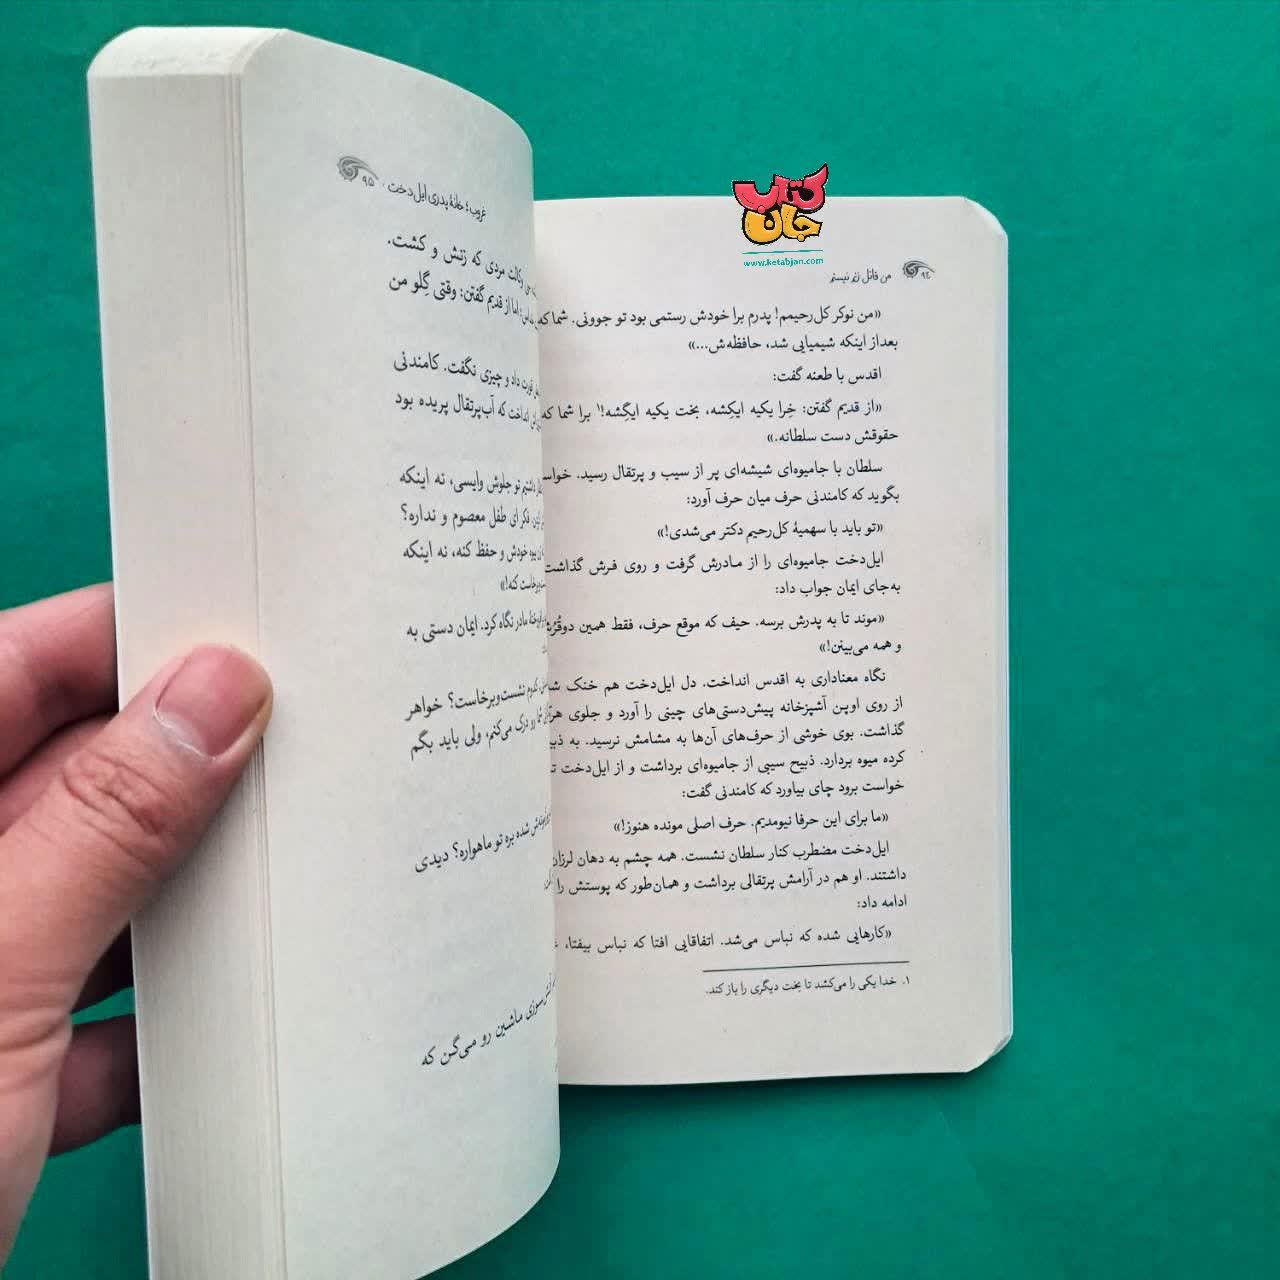 کتاب
جان
www.ketabjan.com
۹۴ من قاتل زنم نیستم
«من نوکر کل‌رحیمم! پدرم برا خودش رستمی بود تو جوونی. شما که
بعداز اینکه شیمیایی شد، حافظه‌ش...»
اقدس با طعنه گفت:
«از قدیم گفتن: خِرا یکیه ایکِشه، بخت یکیه ایگِشه!۱ برا شما که
حقوقش دست سلطانه.»
سلطان با جامیوه‌ای شیشه‌ای پر از سیب و پرتقال رسید. خواست
بگوید که کامندنی حرف میان حرف آورد:
«تو باید با سهمیهٔ کل‌رحیم دکتر می‌شدی!»
ایل‌دخت جامیوه‌ای را از مادرش گرفت و روی فرش گذاشت
به‌جای ایمان جواب داد:
«موند تا به پدرش برسه. حیف که موقع حرف، فقط همین دوقُرُش
و همه می‌بینن!»
نگاه معناداری به اقدس انداخت. دل ایل‌دخت هم خنک شد
از روی اوپن آشپزخانه پیش‌دستی‌های چینی را آورد و جلوی هر
گذاشت. بوی خوشی از حرف‌های آن‌ها به مشامش نرسید. به ذبیح
کرده میوه بردارد. ذبیح سیبی از جامیوه‌ای برداشت و از ایل‌دخت
خواست برود چای بیاورد که کامندنی گفت:
«ما برای این حرفا نیومدیم. حرف اصلی مونده هنوز!»
ایل‌دخت مضطرب کنار سلطان نشست. همه چشم به دهان لرزان
داشتند. او هم در آرامش پرتقالی برداشت و همان‌طور که پوستش را
ادامه داد:
«کارهایی شده که نباس می‌شد. اتفاقایی افتا که نباس بیفتا،
۱. خدا یکی را می‌کشد تا بخت دیگری را باز کند.
غروب؛ خانهٔ پدری ایل‌دخت ۹۵
وکالت مردی که زنش و کشت.
اما از قدیم گفتن: وقتی گِلو من
قورت داد و چیزی نگفت. کامندنی
انداخت که آب‌پرتقال پریده بود
داشتیم تو جلوش وایسی، نه اینکه
فکر ای طفل معصوم و نداره؟
بیوه خودش و حفظ کنه، نه اینکه
کنه!»
مادر نگاه کرد. ایمان دستی به
کدوم نشست‌وبرخاست؟ خواهر
شما رو درک می‌کنم، ولی باید بگم
شده بره تو ماهواره؟ دیدی
سوزی ماشین رو می‌گن که